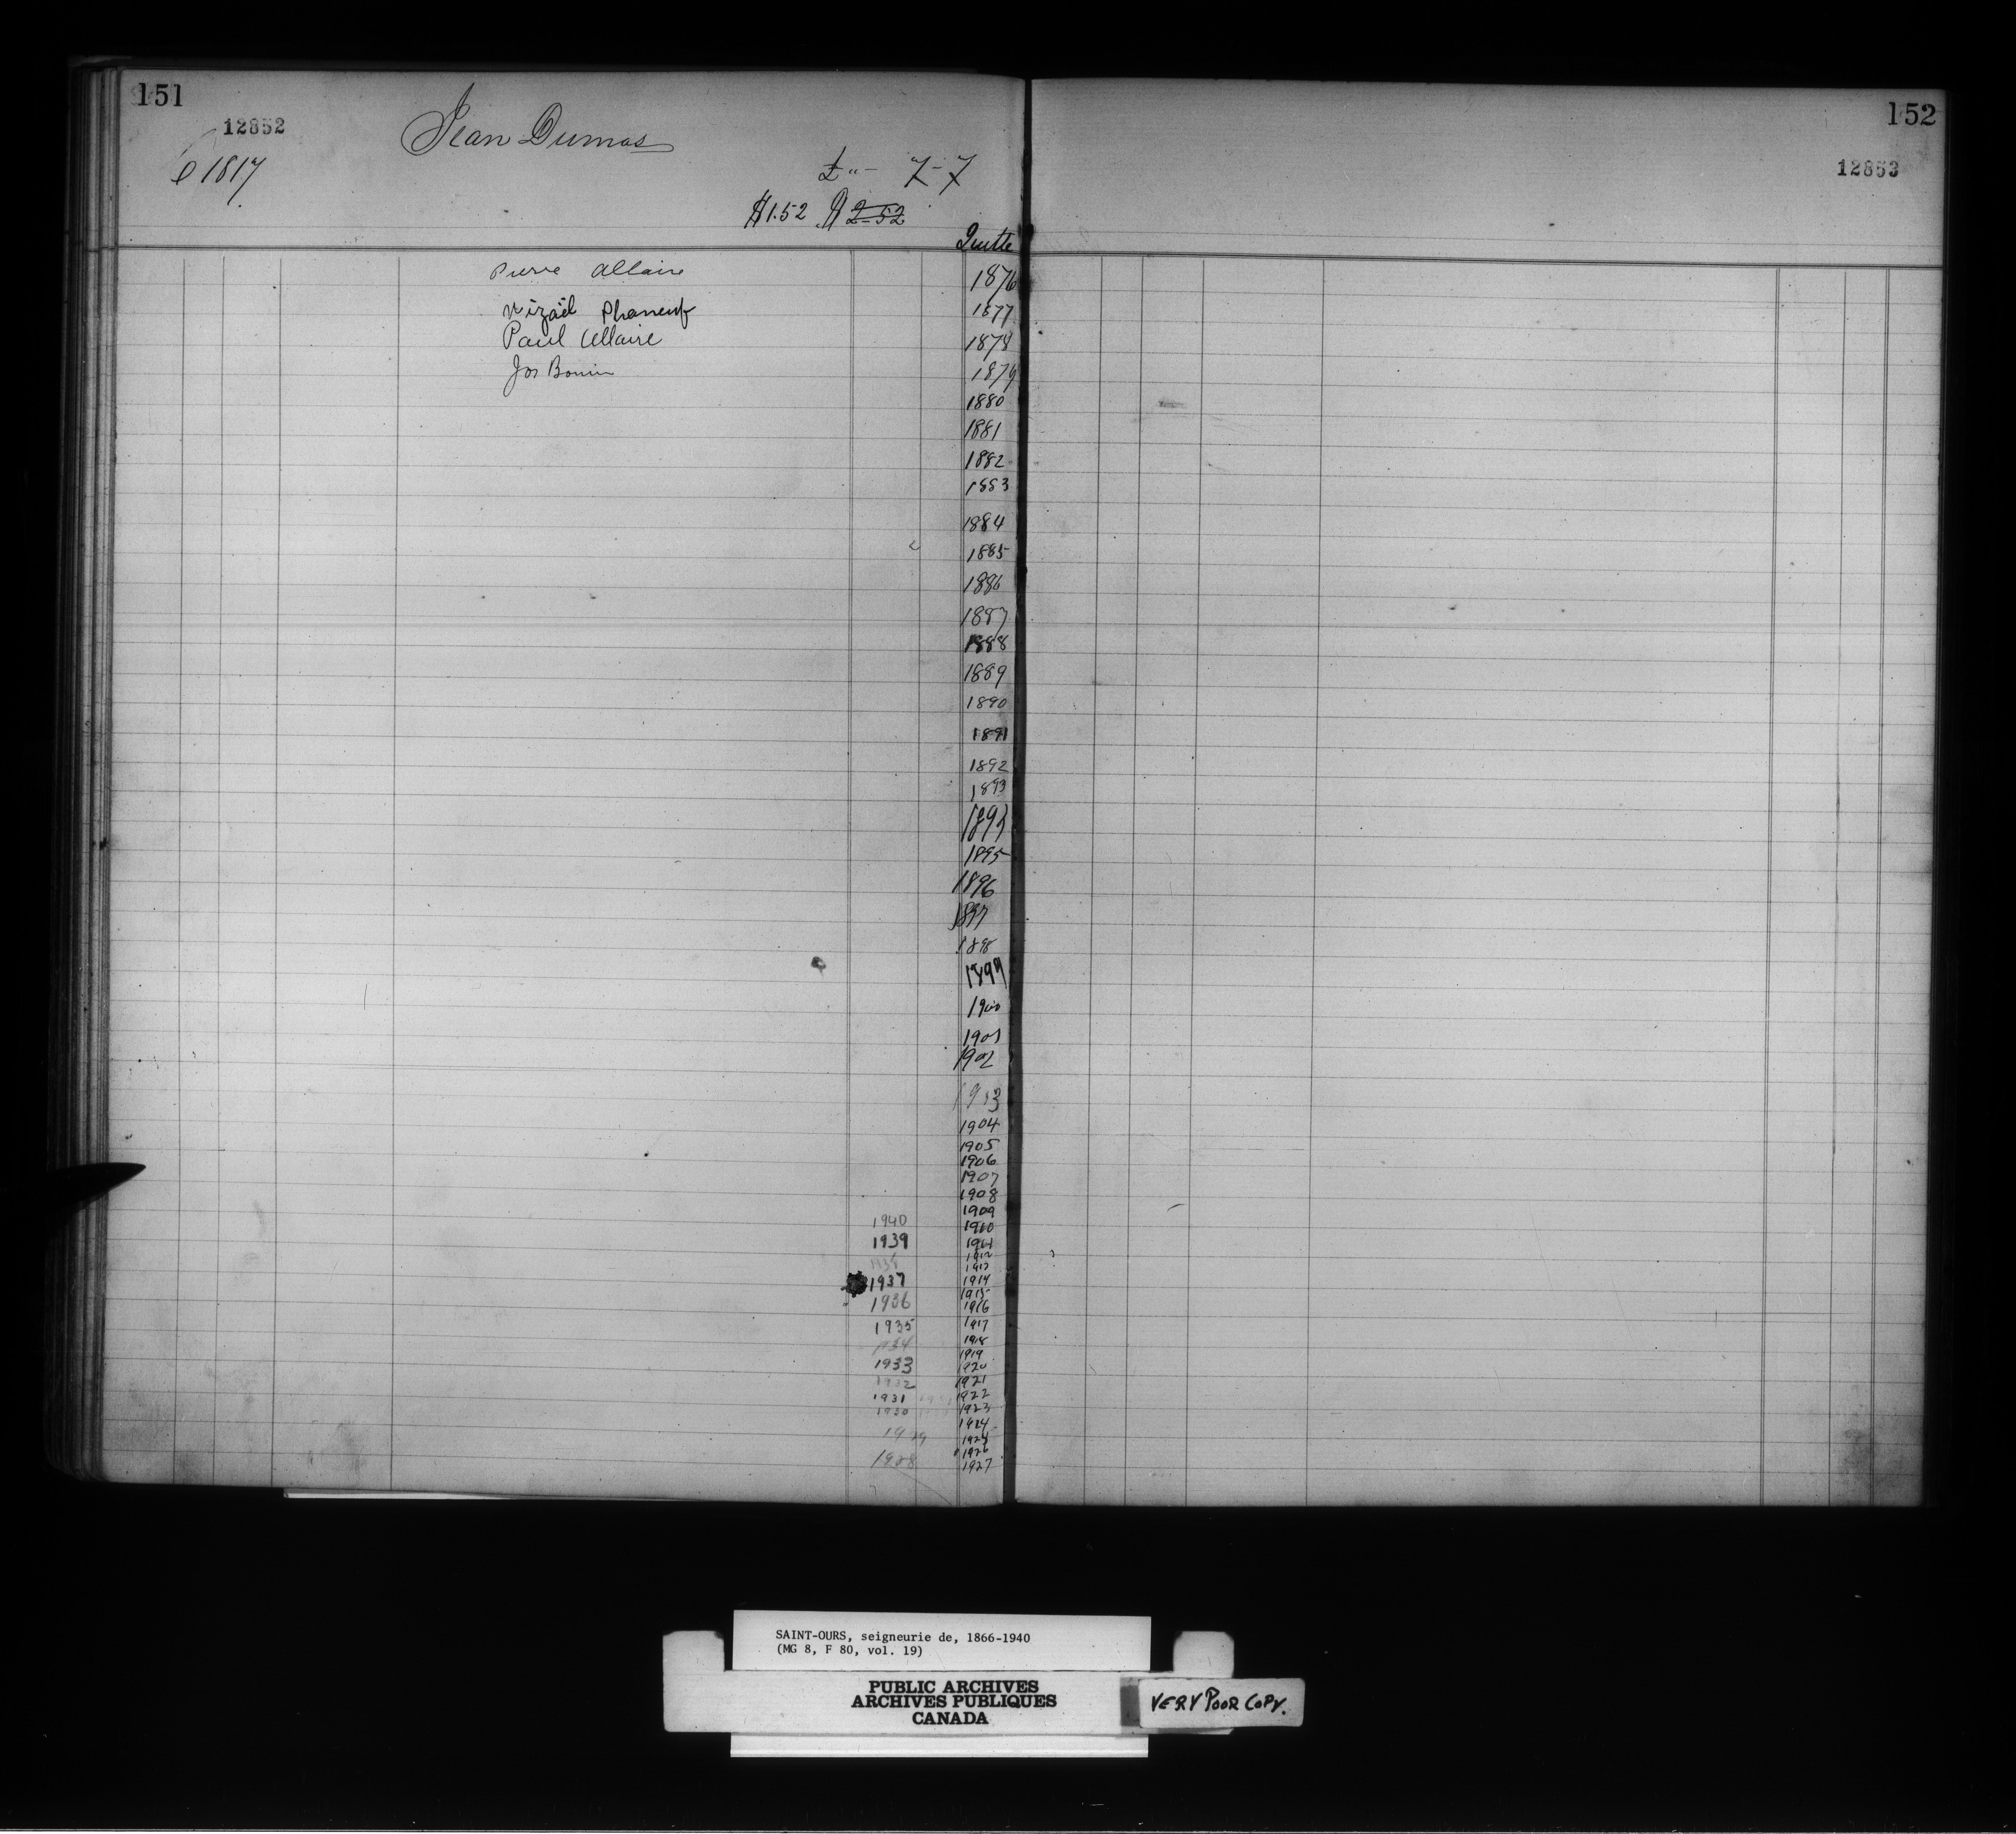 151
12852
Jean Dumas
1817
£ " - 7 - 7
$1.52 $ 2-52
Quitte
Pierre Allaire
1876
Mizaël Phaneuf
1877
Paul Allaire
1878
Jos Bonin
1879
1880
1881
1882
1883
1884
1885
1886
1887
1888
1889
1890
1891
1892
1893
1894
1895
1896
1897
1898
1899
1900
1901
1902
1903
1904
1905
1906
1907
1908
1909
1940 1910
1939 1911
1912
1938 1913
1937 1914
1915
1936 1916
1935 1917
1934 1918
1919
1933 1920
1932 1921
1931 1922
1930 1923
1924
1929 1925
1926
1928 1927
152
12853
SAINT-OURS, seigneurie de, 1866-1940
(MG 8, F 80, vol. 19)
PUBLIC ARCHIVES
ARCHIVES PUBLIQUES
CANADA
VERY POOR COPY.